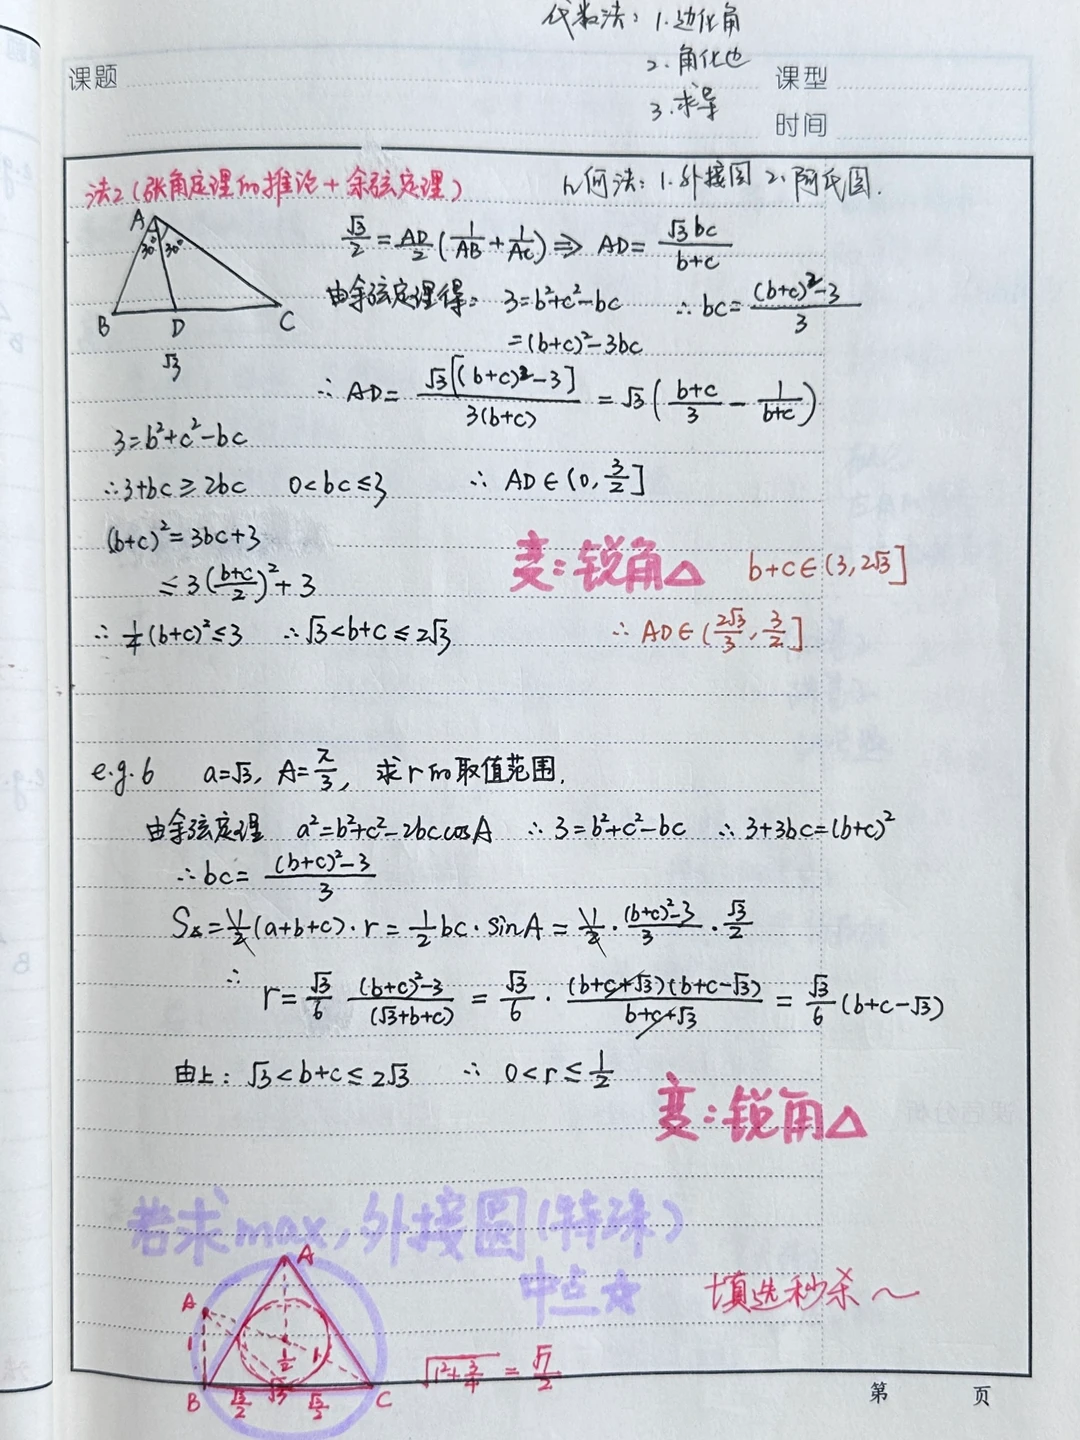 代数法：1.边化角
2.角化边
3.求导
课题
课型
时间
法2（张角定理的推论+余弦定理）
几何法：1.外接圆 2.阿氏圆.
A
30° 30°
B D C
√3
√3/2=AD/2(1/AB+1/AC)⇒AD=√3bc/(b+c)
由余弦定理得：3=b²+c²-bc ∴bc=((b+c)²-3)/3
=(b+c)²-3bc
∴AD=√3[(b+c)²-3]/3(b+c)=√3((b+c)/3-1/(b+c))
3=b²+c²-bc
∴3+bc≥2bc 0<bc≤3 ∴AD∈(0,3/2]
(b+c)²=3bc+3
≤3((b+c)/2)²+3
变：锐角△ b+c∈(3,2√3]
∴1/4(b+c)²≤3 ∴√3<b+c≤2√3 ∴AD∈(2√3/3,3/2]
e.g.6 a=√3,A=π/3,求r的取值范围.
由余弦定理 a²=b²+c²-2bccosA ∴3=b²+c²-bc ∴3+3bc=(b+c)²
∴bc=((b+c)²-3)/3
S△=1/2(a+b+c)·r=1/2bc·sinA=1/2·((b+c)²-3)/3·√3/2
∴r=√3/6 ((b+c)²-3)/(√3+b+c)=√3/6·(b+c+√3)(b+c-√3)/(b+c+√3)=√3/6(b+c-√3)
由上：√3<b+c≤2√3 ∴0<r≤1/2
变：锐角△
若求max,外接圆(特殊)
中点☆
填选秒杀~
A
A
1
1/2 1
B √3/2 √3 √3/2 C
√(1²+3/4)=√7/2
第 页